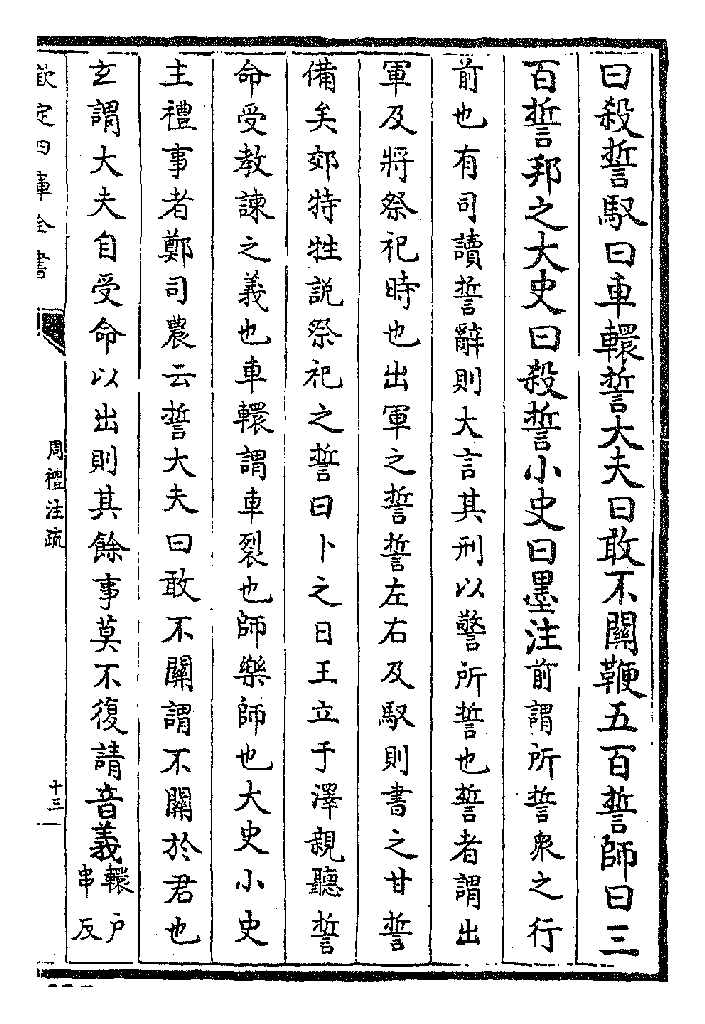 曰殺誓馭曰車轘誓大夫曰敢不關鞭五百誓師曰三
百誓邦之大史曰殺誓小史曰墨注前謂所誓衆之行
前也有司讀誓辭則大言其刑以警所誓也誓者謂出
軍及將祭祀時也出軍之誓誓左右及馭則書之甘誓
備矣郊特牲説祭祀之誓曰卜之日王立于澤親聽誓
命受教諫之義也車轘謂車裂也師樂師也大史小史
主禮事者鄭司農云誓大夫曰敢不關謂不關於君也
玄謂大夫自受命以出則其餘事莫不復請音義轘戸
串反
欽定四庫全書
周禮注疏
十三